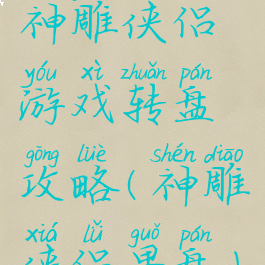 神雕侠侣
yóu xì zhuǎn pán
游戏转盘
gōng lüè shén diāo
攻略(神雕
xiá lǚ guǒ pán
侠侣果盘)